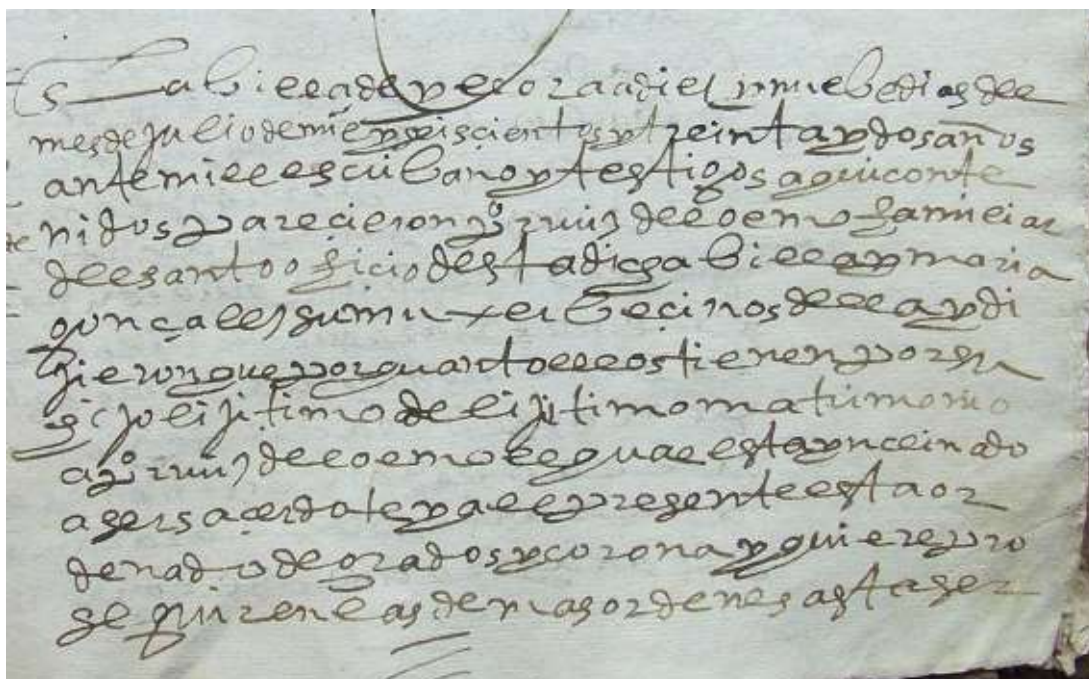 En la billa de yecora a diez y nuebe dias del
mes de julio de mil y seiscientos y treinta y dos años
ante mi el escribano y testigos aqui conte
nidos parecieron po ruiz del oemo familiar
del santo oficio desta dicha billa y maria
gonçalez su muxer becinos della y di
xieron que por quanto ellos tienen por su
hijo lijitimo de lijitimo matrimonio
a po ruiz del oemo el qual esta yncrinado
a ser sacerdote y al presente esta or
denado de grados y corona y quiere pro
seguir en las demas ordenes asta ser